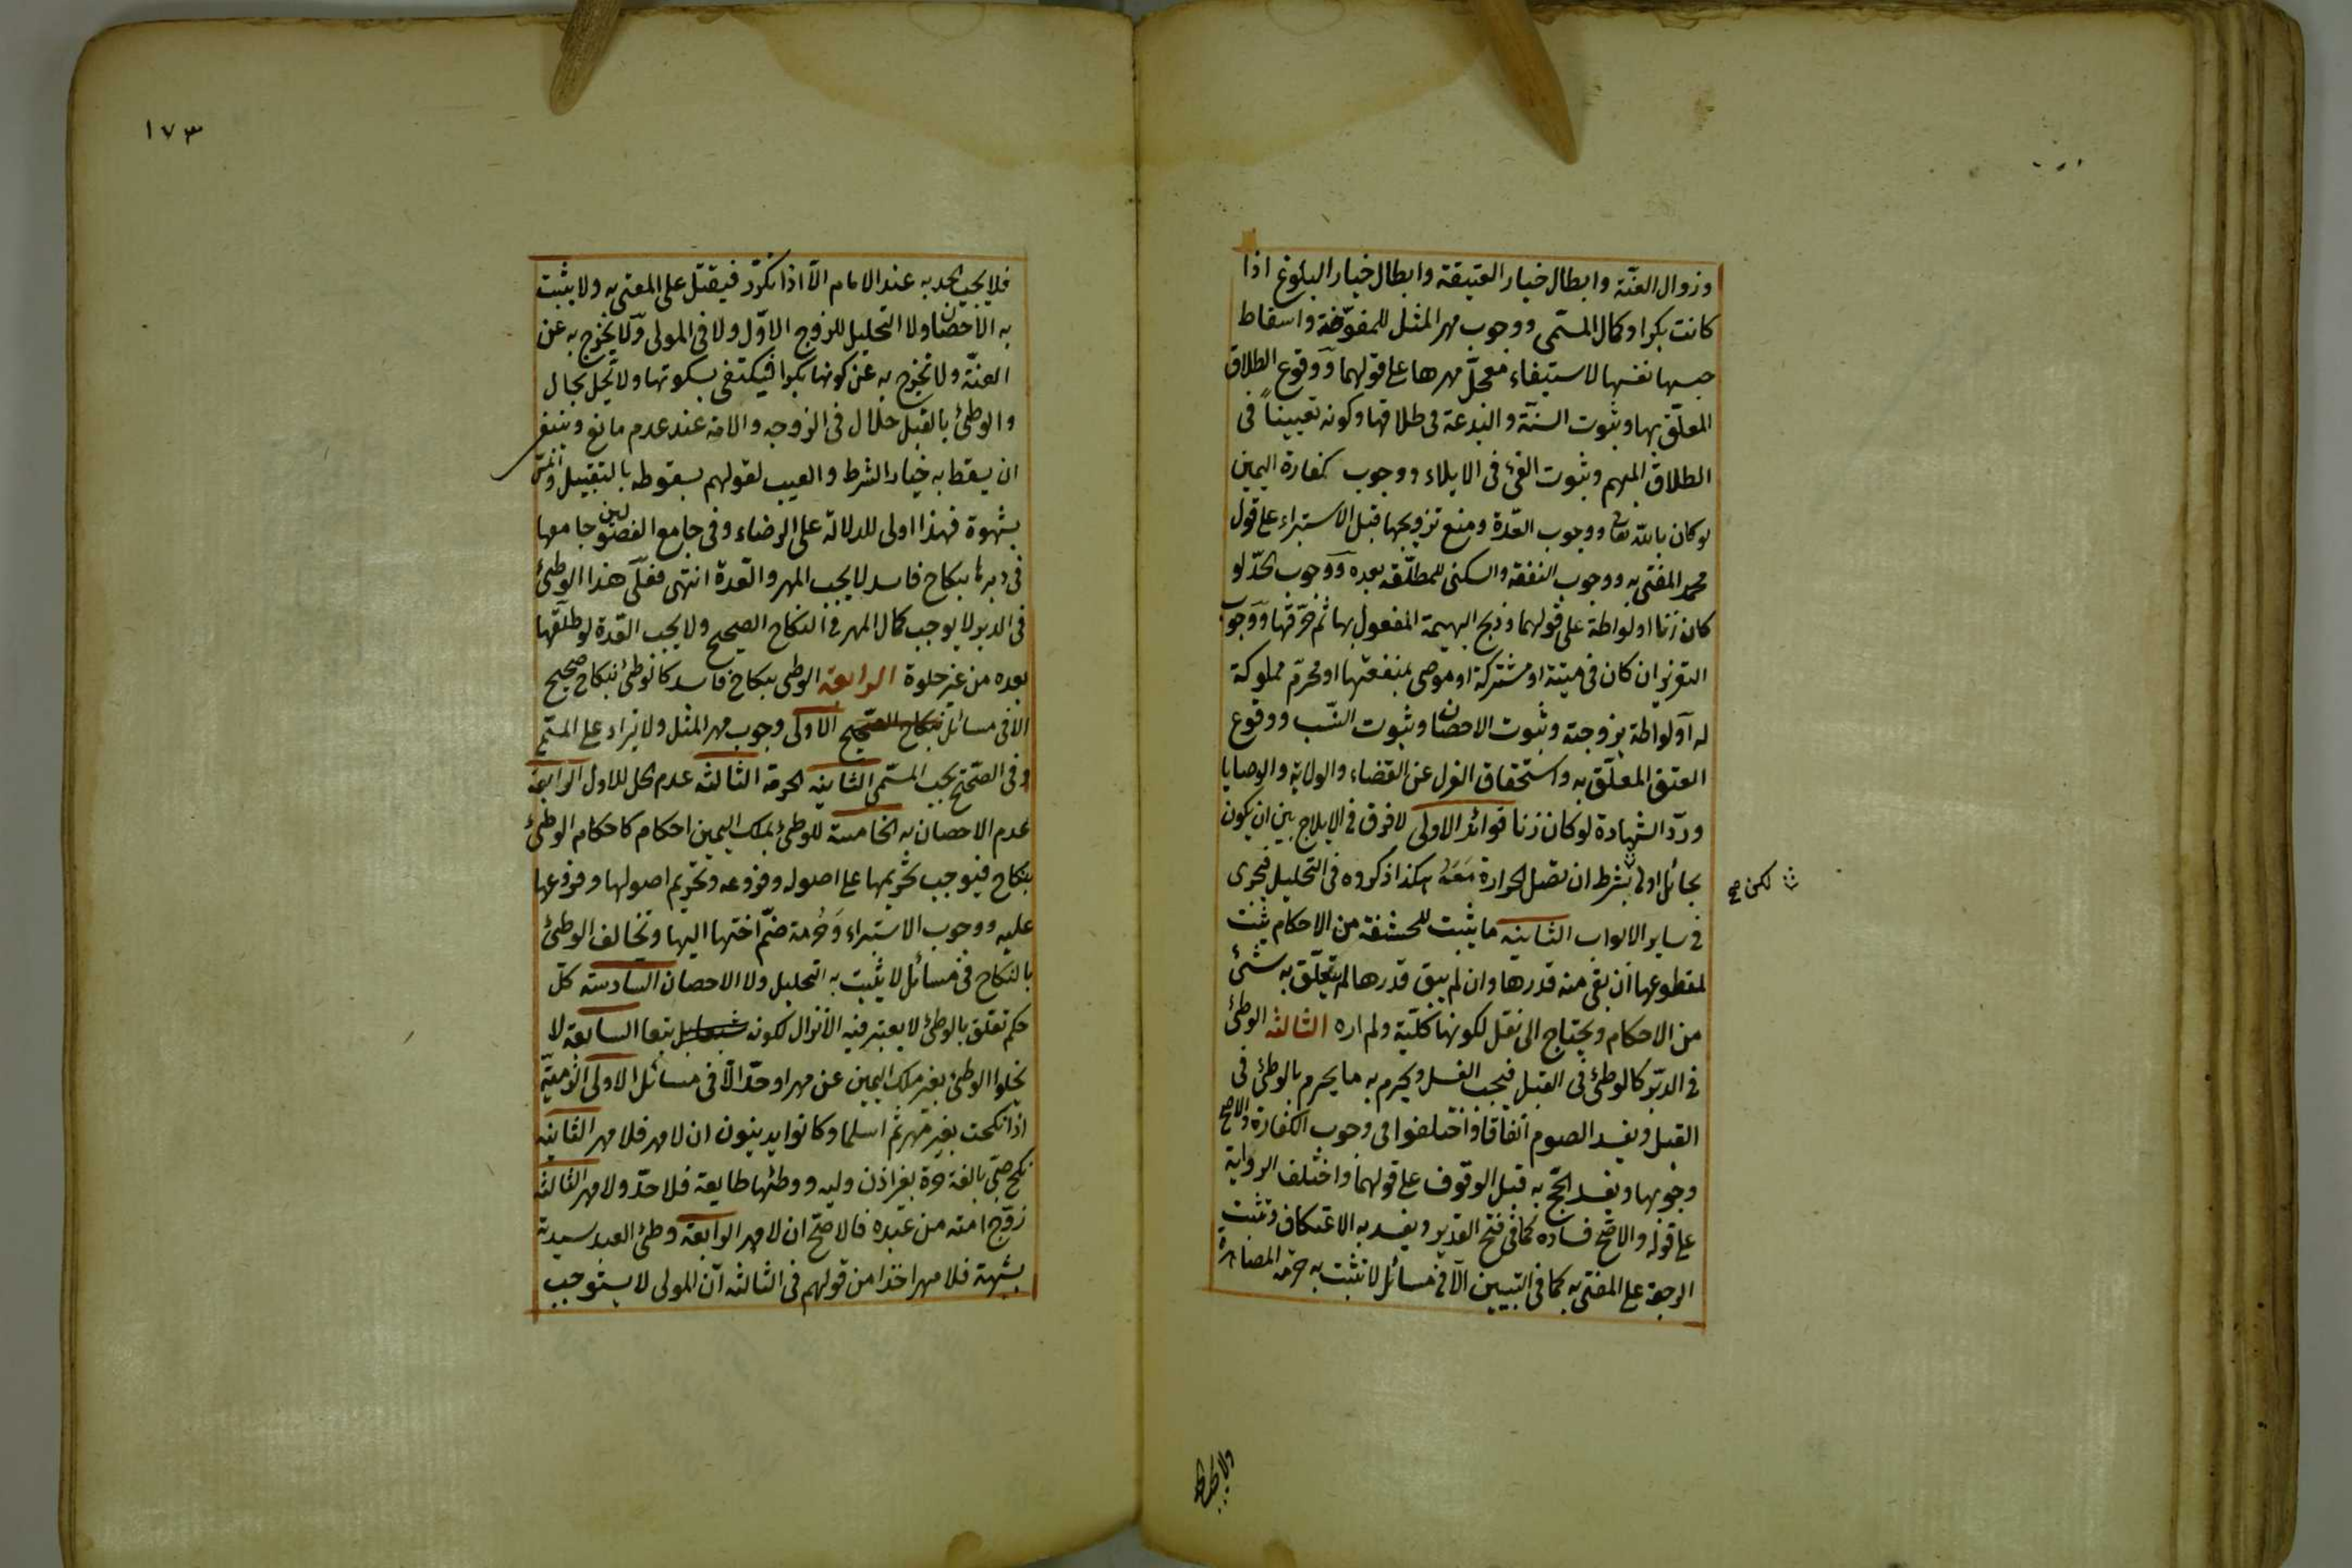 وزوال العنّة وابطال خيار العتيقة وابطال خيار البلوغ اذا
كانت بكرا وكمال المسمّى ووجوب مهر المثل للمفوّضة واسقاط
حبسها نفسها لاستيفاء معجّل مهرها على قولهما ووقوع الطلاق
المعلّق بها وثبوت السنّة والبدعة فى طلاقها وكونه تعييناً فى
الطلاق المبهم وثبوت الفئ فى الايلاء ووجوب كفارة اليمين
لو كان بالله تعا ووجوب العدّة ومنع تزويجها قبل الاستبراء على قول
محمد المفتى به ووجوب النفقة والسكنى للمطلّقة بعده ووجوب الحدّ لو
كان زنا او لواطة على قولهما وذبح البهيمة المفعول بها ثم حرقها ووجوب
التعزير ان كان فى ميتة او مشتركة او موصى بمنفعتها او محرّم مملوكة
له او لواطة بزوجته وثبوت الاحصان وثبوت النسب ووقوع
العتق المعلّق به واستحقاق العزل عن القضاء والولاية والوصايا
وردّ الشهادة لو كان زنا فوائد الاولى لا فرق فى الايلاج بين ان يكون
بحائل اولى بشرط ان تصل الحرارة مَعَهُ هكذا ذكروه فى التحليل فيجرى
لكن صح
فى ساير الابواب الثانيه ما يثبت للحشفة من الاحكام يثبت
لمقطوعها ان بقى منه قدرها وان لم يبق قدرها لم يتعلّق به شئ
من الاحكام ويحتاج الى نقل لكونها كلّيّة ولم اره الثالثه الوطئ
فى الدبر كالوطئ فى القبل فيجب الغسل ويحرم به ما يحرم بالوطئ فى
القبل ويفسد الصوم اتفاقا واختلفوا فى وجوب الكفارة والاصح
وجوبها ويفسد الحج به قبل الوقوف على قولهما واختلف الرواية
على قوله والاصحّ فساده كما فى فتح القدير ويفسد به الاعتكاف وتثبت
الرجعة على المفتى به كما فى التبيين الّا فى مسائل لا تثبت به حرمة المصاهرة
ولا يجب الحد
١٧٣
فلا يجب الحد به عند الامام الّا اذا تكرّر فيقتل على المفتى به ولا يثبت
به الاحصان ولا التحليل للزوج الاوّل ولا فى المولى ولا يخرج به عن
العنّة ولا تخرج به عن كونها بكرا فيكتفى بسكوتها ولا يحل بحال
والوطئ بالقبل حلال فى الزوجه والامة عند عدم مانع وينبغى
ان يسقط به خيار الشرط والعيب لقولهم بسقوطه بالتقبيل والمس
بشهوة فهذا اولى للدلالة على الرضاء وفى جامع الفصولين جامعها
فى دبرها بنكاح فاسد لا يجب المهر والعدة انتهى فعلى هذا الوطئ
فى الدبر لا يوجب كمال المهر فى النكاح الصحيح ولا يجب العدة لو طلقها
بعده من غير خلوة الرابعة الوطى بنكاح فاسد كالوطئ بنكاح صحيح
الا فى مسائل نكاح الصحيح الاولى وجوب مهر المثل ولا يزاد على المسمّى
وفى الصّحيح يجب المسمّى الثانيه الحرمة الثالثه عدم الحل للاول الرابعة
عدم الاحصان به الخامسة للوطئ بملك اليمين احكام كاحكام الوطئ
بنكاح فيوجب تحريمها على اصوله وفروعه وتحريم اصولها وفروعها
عليه ووجوب الاستبراء وحُرمة ضمّ اختها اليها وتخالف الوطئ
بالنكاح فى مسائل لا يثبت به التحليل ولا الاحصان السادسة كلّ
حكم تعلق بالوطئ لا يعتبر فيه الانزال لكونه تبعا السابعة لا
يخلوا الوطئ بغير ملك اليمين عن مهر او حدّ الّا فى مسائل الاولى الذميّة
اذا نكحت بغير مهر ثم اسلما وكانوا يدينون ان لا مهر فلا مهر الثانية
نكح صبى بالغة حرة بغير اذن وليه ووطئها طايعة فلا حدّ ولا مهر الثالثه
زوّج امته من عبده فالاصحّ ان لا مهر الرابعة وطئ العبد سيدته
بشبهة فلا مهر اخذا من قولهم فى الثالثه انّ المولى لا يستوجب